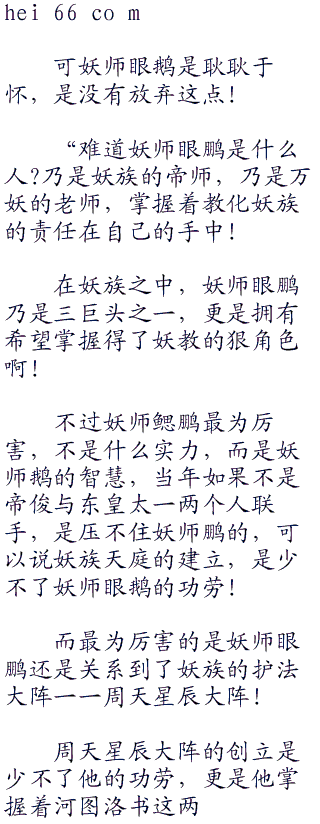 hei 66 co m
可妖师眼鹅是耿耿于
怀，是没有放弃这点！
“难道妖师眼鹏是什么
人?乃是妖族的帝师，乃是万
妖的老师，掌握着教化妖族
的责任在自己的手中！
在妖族之中，妖师眼鹏
乃是三巨头之一，更是拥有
希望掌握得了妖教的狠角色
啊！
不过妖师鳃鹏最为厉
害，不是什么实力，而是妖
师鹅的智慧，当年如果不是
帝俊与东皇太一两个人联
手，是压不住妖师鹏的，可
以说妖族天庭的建立，是少
不了妖师眼鹅的功劳！
而最为厉害的是妖师眼
鹏还是关系到了妖族的护法
大阵一一周天星辰大阵！
周天星辰大阵的创立是
少不了他的功劳，更是他掌
握着河图洛书这两